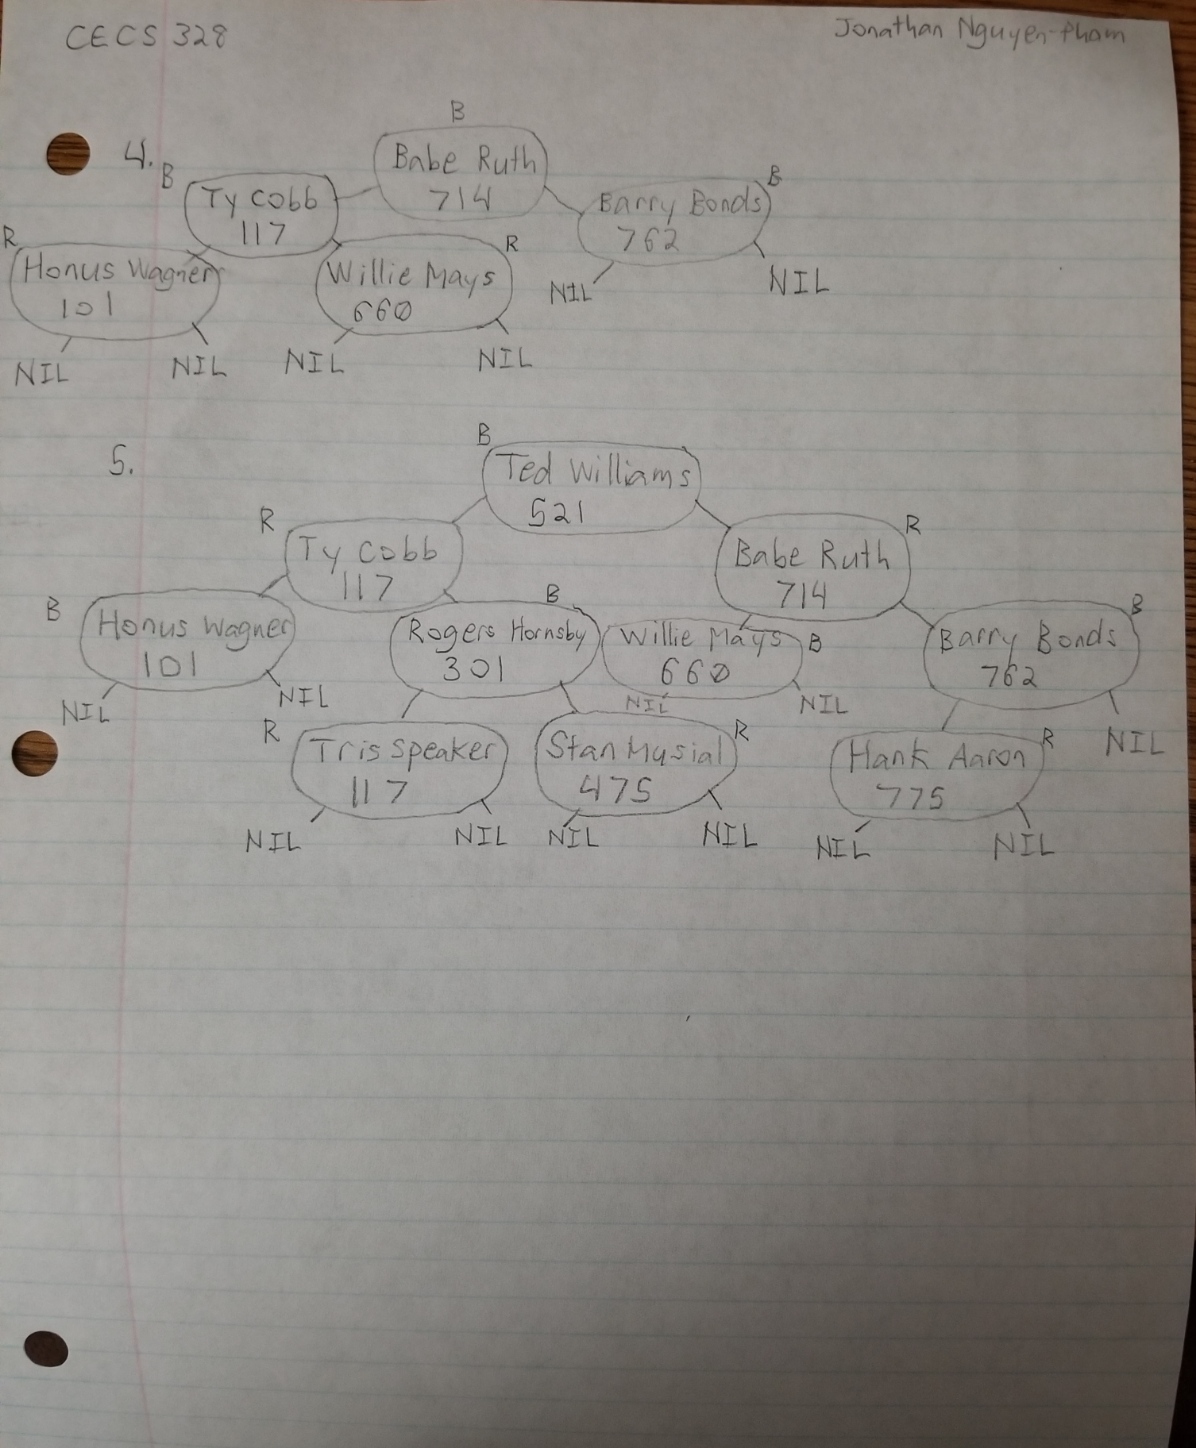 CECS 328
Jonathan Nguyen-Pham
4.
B
Babe Ruth
714
B
Ty Cobb
117
B
Barry Bonds
762
R
Honus Wagner
101
R
Willie Mays
660
NIL NIL
NIL NIL NIL NIL
5.
B
Ted Williams
521
R
Ty Cobb
117
R
Babe Ruth
714
B
Honus Wagner
101
B
Rogers Hornsby
301
Willie Mays B
660
B
Barry Bonds
762
NIL NIL NIL NIL NIL
R
Tris Speaker
117
Stan Musial R
475
Hank Aaron R
775
NIL NIL NIL NIL NIL NIL